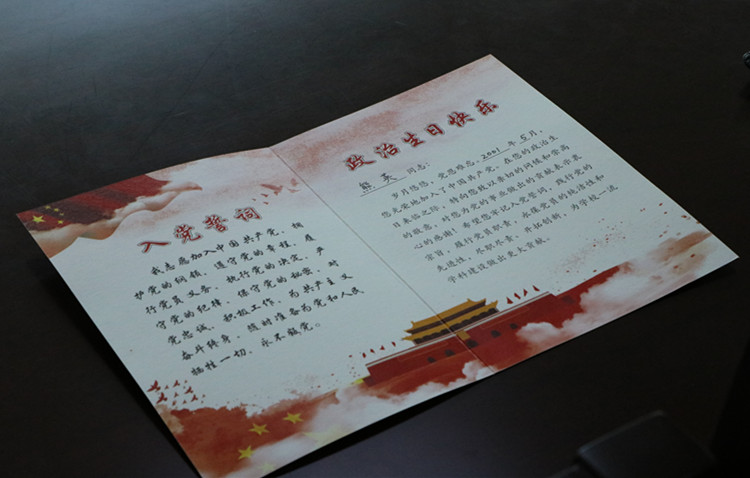 入党誓词
我志愿加入中国共产党，拥
护党的纲领，遵守党的章程，履
行党员义务，执行党的决定，严
守党的纪律，保守党的秘密，对
党忠诚，积极工作，为共产主义
奋斗终身，随时准备为党和人民
牺牲一切，永不叛党。
政治生日快乐
熊英 同志：
岁月悠悠，党恩难忘，2001年5月，
您光荣地加入了中国共产党，在您的政治生
日来临之际，特向您致以亲切的问候和崇高
的敬意，对您为党的事业做出的贡献表示衷
心的感谢！希望您牢记入党誓词，践行党的
宗旨，履行党员职责，永葆党员的纯洁性和
先进性，尽职尽责，开拓创新，为学校一流
学科建设做出更大贡献。